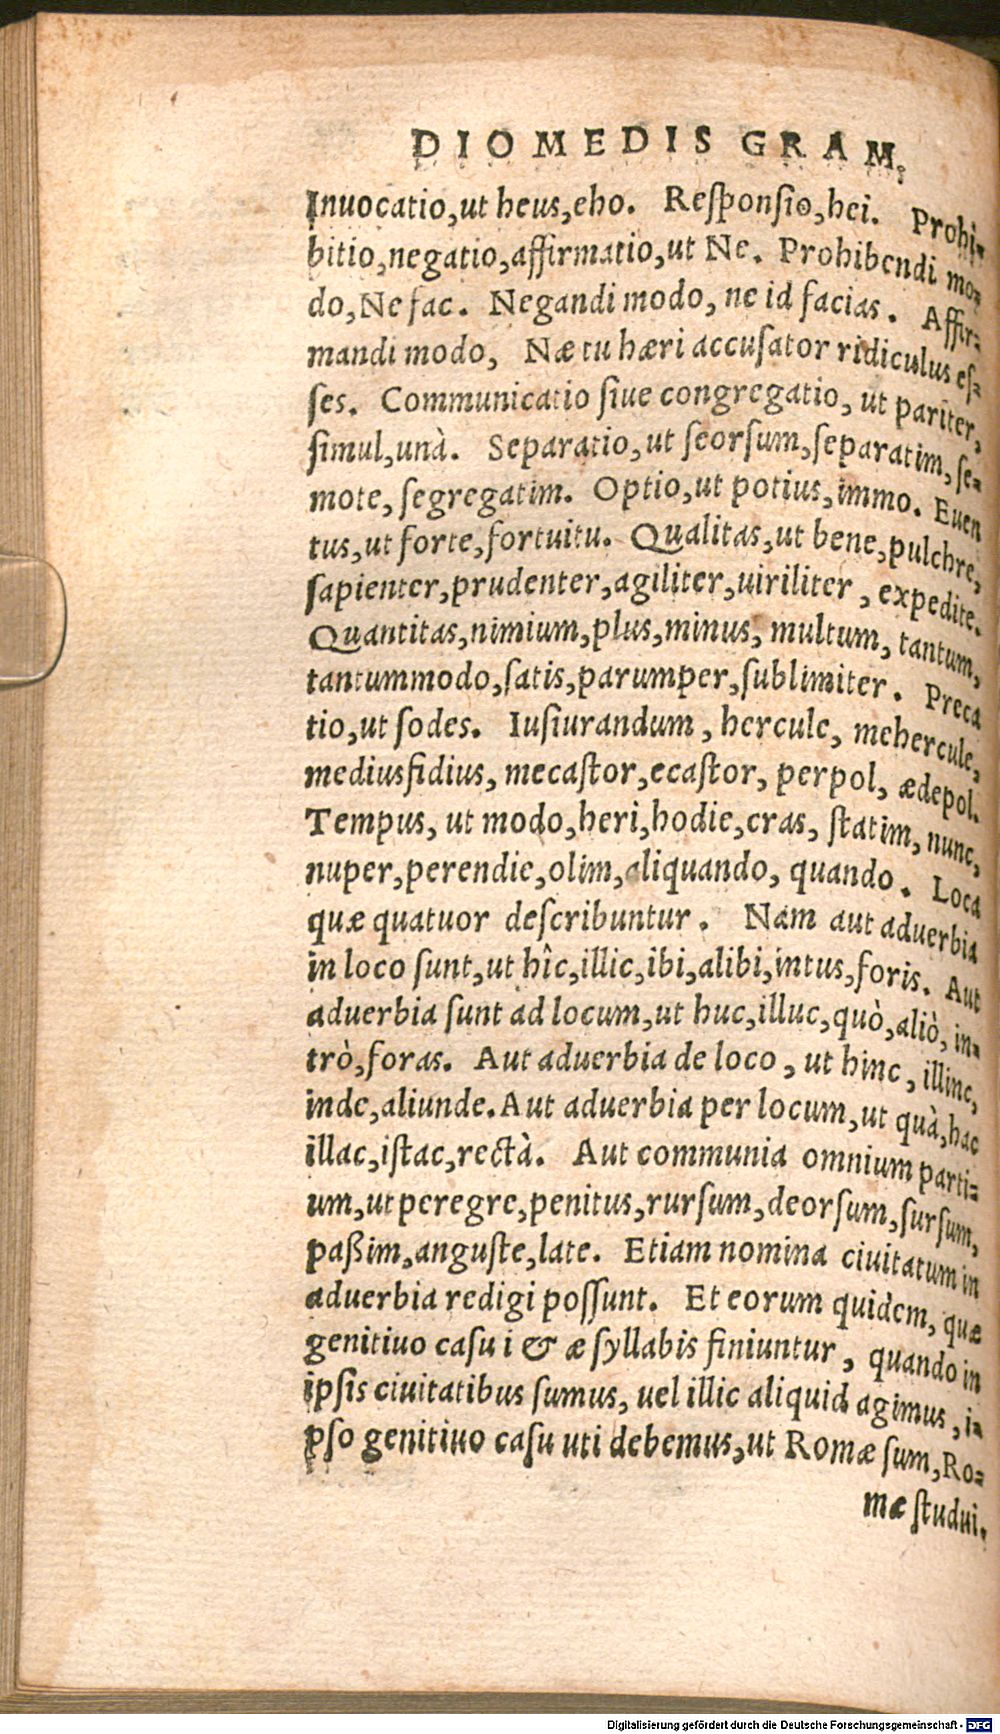 DIOMEDIS GRAM.
Inuocatio,ut heus,eho. Reſponſio,hei. Prohi-
bitio,negatio,affirmatio,ut Ne. Prohibendi mo-
do,Ne fac. Negandi modo, ne id facias. Affir-
mandi modo, Næ tu hæri accuſator ridiculus eſ-
ſes. Communicatio ſiue congregatio, ut pariter,
ſimul,unà. Separatio,ut ſeorſum,ſeparatim,ſe-
mote,ſegregatim. Optio,ut potius,immo. Euen
tus,ut forte,fortuitu. Qualitas,ut bene,pulchre,
sapienter,prudenter,agiliter,uiriliter, expedite.
Quantitas,nimium,plus,minus, multum, tantum,
tantummodo,ſatis,parumper,ſublimiter. Preca
tio,ut ſodes. Iuſiurandum, hercule, mehercule,
mediusfidius, mecaſtor,ecaſtor, perpol, ædepol.
Tempus, ut modo,heri,hodie,cras, ſtatim, nunc,
nuper,perendie,olim,aliquando, quando. Loca
quæ quatuor deſcribuntur. Nam aut aduerbia
in loco ſunt,ut hîc,illic,ibi,alibi,intus,foris. Aut
aduerbia ſunt ad locum,ut huc,illuc,quò,aliò, in-
trò,foras. Aut aduerbia de loco, ut hinc, illinc,
inde,aliunde. Aut aduerbia per locum,ut quà,hac
illac,iſtac,rectà. Aut communia omnium parti-
um,ut peregre,penitus,rurſum,deorſum,ſurſum,
paßim,anguſte,late. Etiam nomina ciuitatum in
aduerbia redigi poſſunt. Et eorum quidem, quæ
genitiuo caſu i & æ ſyllabis finiuntur, quando in
ipſis ciuitatibus ſumus, uel illic aliquid agimus, i-
pſo genitiuo caſu uti debemus,ut Romæ ſum, Ro-
mæ ſtudui.
Digitalisierung gefördert durch die Deutsche Forschungsgemeinschaft - DFG